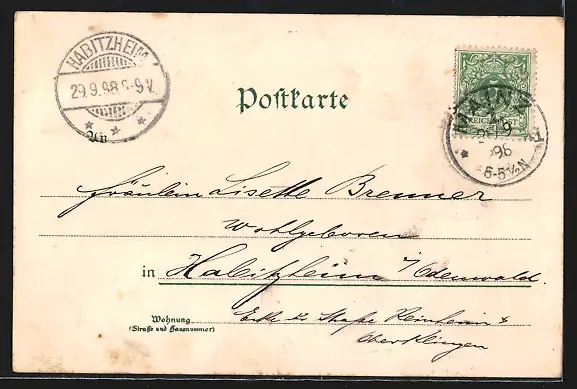 HABITZHEIM
29.9.98 8-9 V.
Postkarte
REICHSPOST
MAINZ
98
5-5½N
An
Fräulein Lisette Brenner
Wohlgeboren
in Habitzheim i/Odenwald.
Wohnung
(Straße und Hausnummer)
Reinheim &
Oberklingen